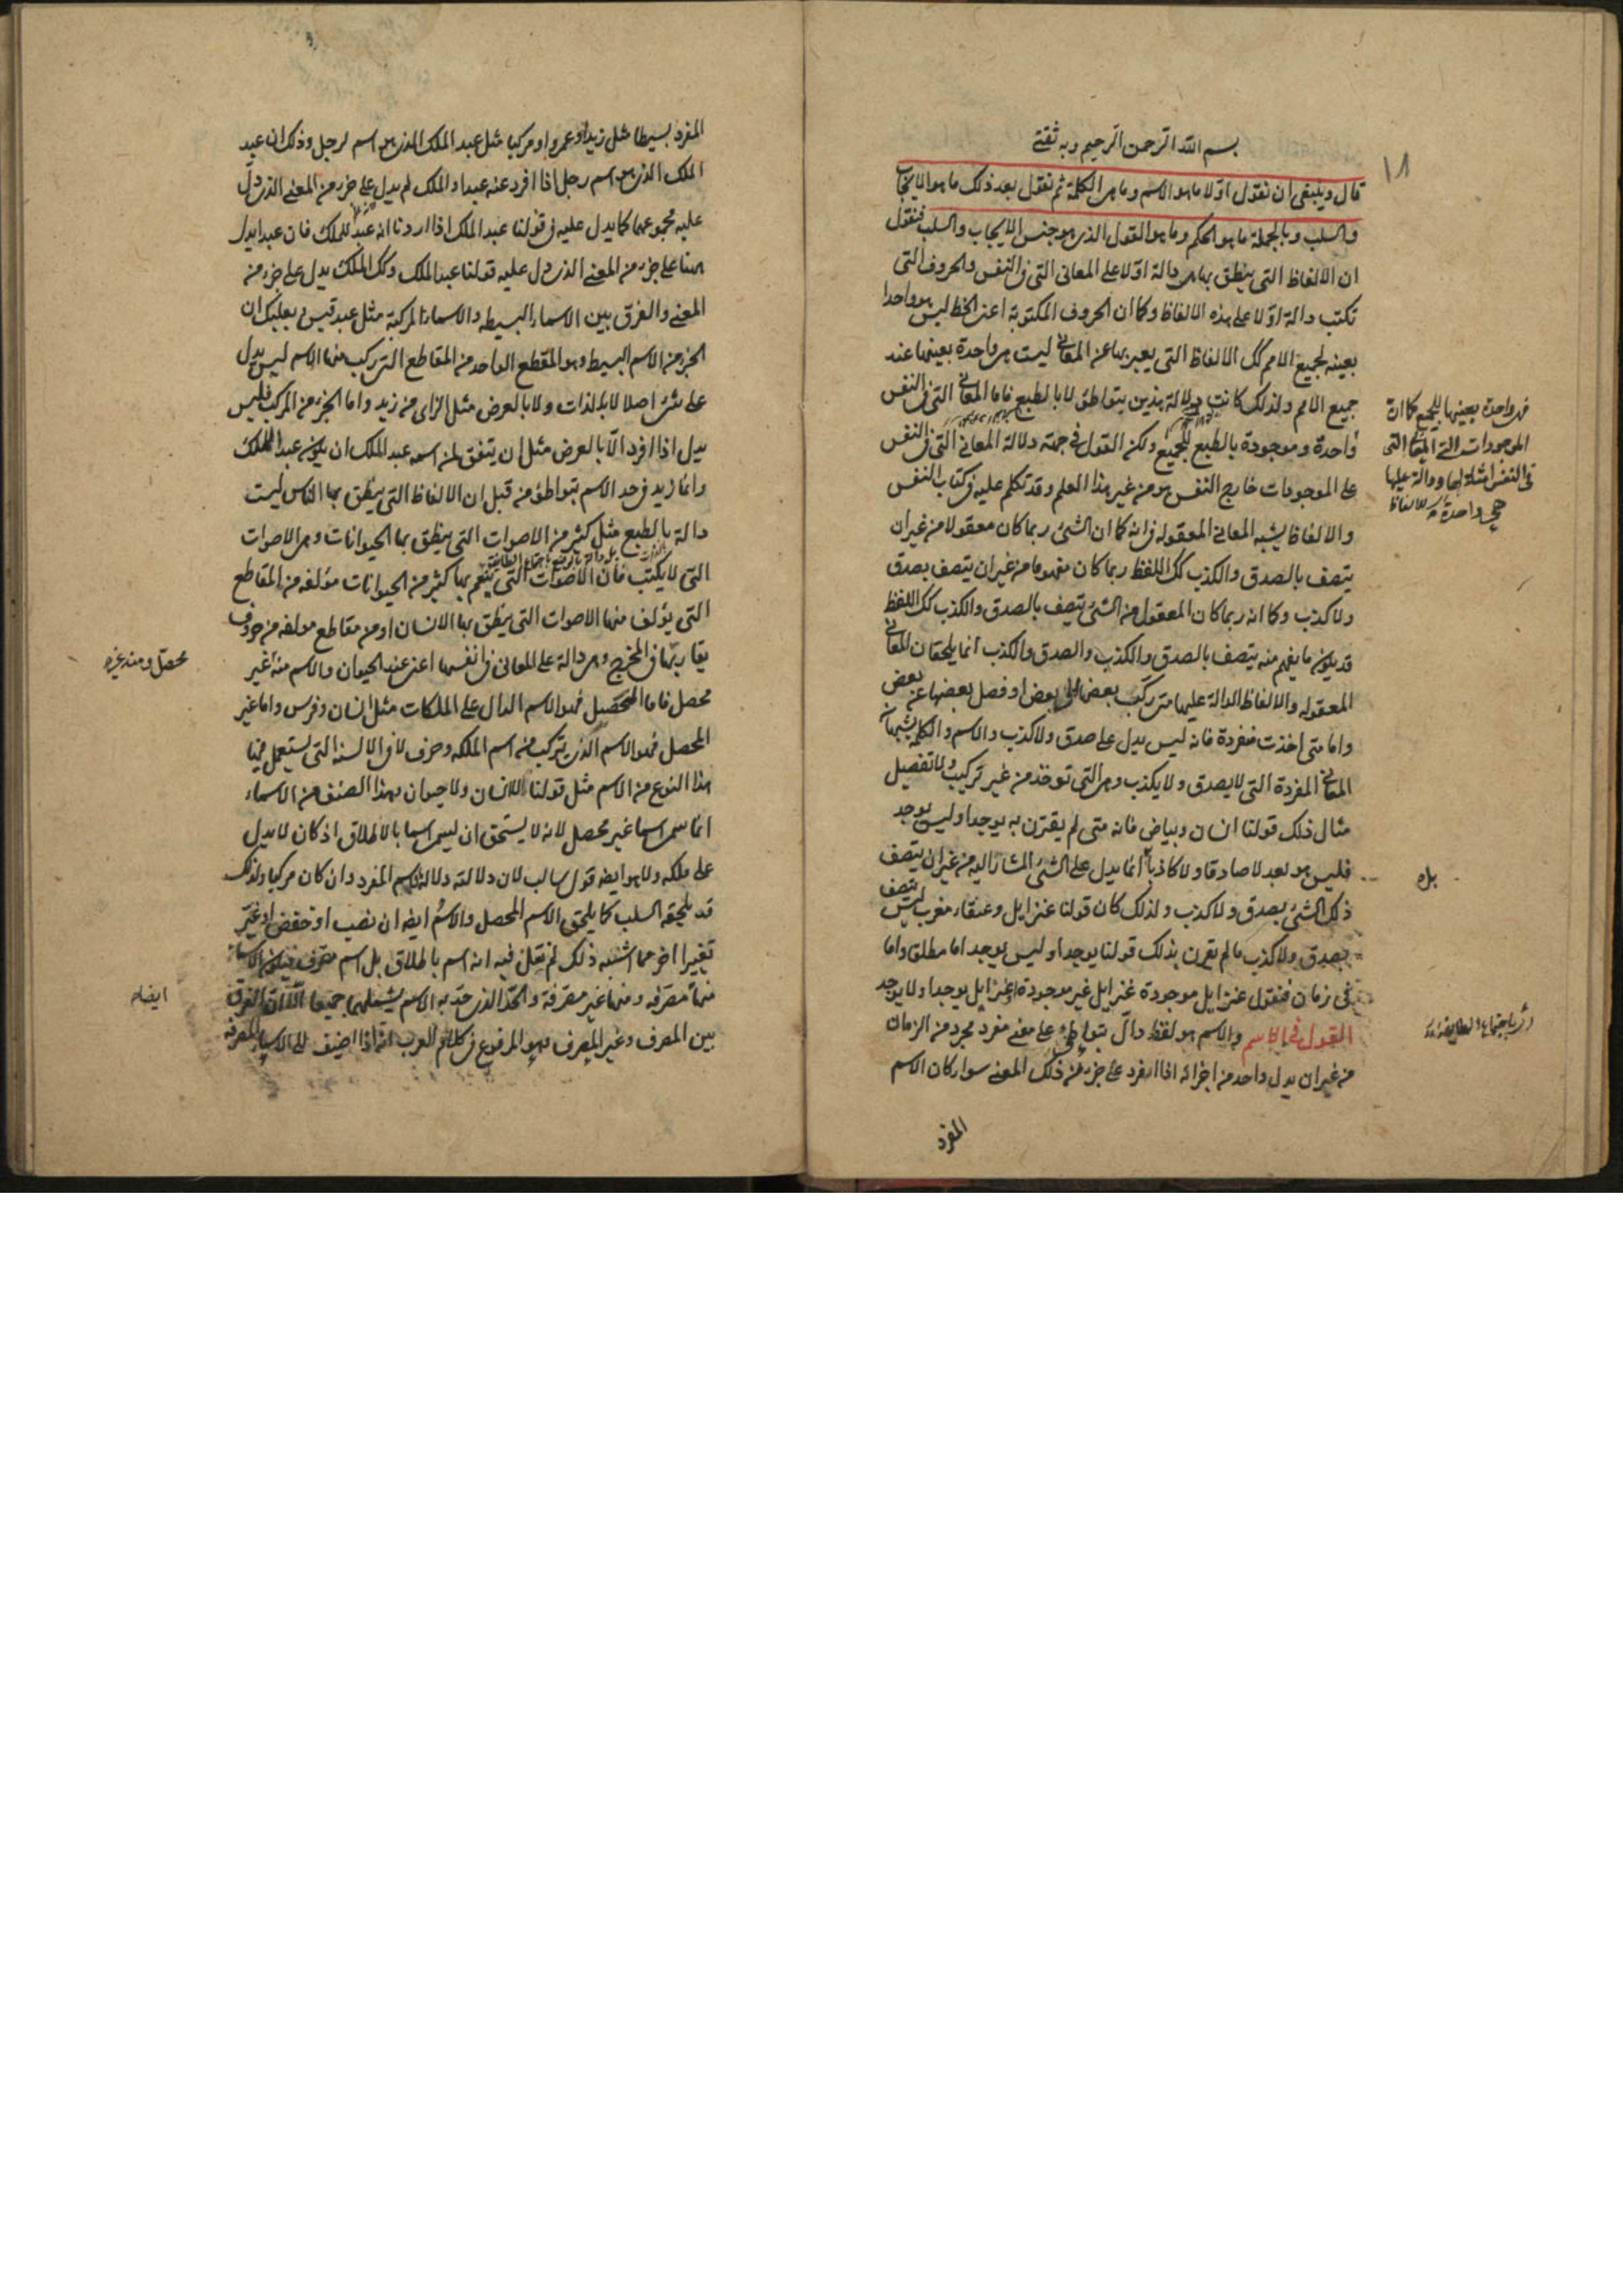 بسم الله الرحمن الرحيم وبه ثقتي
١٨
قال وينبغي ان نقول اولا ما هو الاسم وما هي الكلمة ثم نقول بعد ذلك ما هو الايجاب
والسلب وبالجملة ما هو الحكم وما هو القول الذي هو جنس الايجاب والسلب فنقول
ان الالفاظ التي ينطق بها هي دالة اولا على المعاني التي في النفس والحروف التي
تكتب دالة اولا على هذه الالفاظ وكما ان الحروف المكتوبة اعني الخط ليس هو واحدا
بعينه لجميع الامم كك الالفاظ التي يعبر بها عن المعاني ليست هي واحدة بعينها عند
جميع الامم ولذلك كانت دلالة هذين بتواطؤ لا بالطبع فاما المعاني التي في النفس
فهي واحدة بعينها للجميع كما ان
الموجودات التي المعاني التي
في النفس امثلة لها ودالة عليها
هي واحدة
واحدة وموجودة بالطبع للجميع ولكن القول في جهة دلالة المعاني التي في النفس
على الموجودات خارج النفس هو من غير هذا العلم وقد تكلم عليه في كتاب النفس
والالفاظ يشبه المعاني المعقوله في انه كما ان الشئ ربما كان معقولا من غير ان
يتصف بالصدق والكذب كك اللفظ ربما كان مفهوما من غير ان يتصف بصدق
ولا كذب وكما انه ربما كان المعقول من الشئ يتصف بالصدق والكذب كك اللفظ
قد يكون ما يفهم منه يتصف بالصدق والكذب والصدق والكذب انما يلحقان المعاني
المعقوله والالفاظ الدالة عليها متى ركب بعضها الى بعض او فصل بعضها عن بعض
واما متى اخذت مفردة فانه ليس يدل على صدق ولا كذب والاسم والكلمة يشبهان
المعاني المفردة التي لا يصدق ولا يكذب وهي التي توخذ من غير تركيب ولا تفصيل
مثال ذلك قولنا انسان وبياض فانه متى لم يقترن به يوجد او ليس يوجد
فليس هو بعد لا صادقا ولا كاذبا انما يدل على الشئ المشار اليه من غير ان يتصف
بل
ذلك الشئ بصدق ولا كذب ولذلك كان قولنا عنزايل وعنقاء مغرب ليس يتصف
بصدق ولا كذب ما لم يقرن بذلك قولنا يوجد او ليس يوجد اما مطلق واما
في زمان فنقول عنزايل موجودة عنزايل غير موجودة عنزايل يوجد او لا يوجد
القول في الاسم والاسم هو لفظ دال بتواطئ على معنى مفرد مجرد من الزمان
من غير ان يدل واحد من اجزائه اذا افرد على جزء من ذلك المعنى سواء كان الاسم
المفرد
المفرد بسيطا مثل زيد او عمرو او مركبا مثل عبد الملك الذي هو اسم لرجل وذلك ان عبد
الملك الذي هو اسم رجل اذا افرد عنه عبد او الملك لم يدل على جزء من المعنى الذي دل
عليه مجموعهما كما يدل عليه في قولنا عبد الملك اذا اردنا انه عبد للملك فان عبدا يدل
ههنا على جزء من المعنى الذي دل عليه قولنا عبد الملك وكك الملك يدل على جزء من
المعنى والفرق بين الاسماء البسيطه والاسماء المركبة مثل عبد قيس وبعلبك ان
الجزء من الاسم البسيط وهو المقطع الواحد من المقاطع التي تركب منها الاسم ليس يدل
على شئ اصلا لا بالذات ولا بالعرض مثل الزاى من زيد واما الجزء من المركب فليس
يدل اذا افرد الا بالعرض مثل ان يتفق لمن اسمه عبد الملك ان يكون عبد الملك
وانما زيد في حد الاسم بتواطؤ من قبل ان الالفاظ التي ينطق بها الناس ليست
دالة بالطبع مثل كثير من الاصوات التي ينطق بها الحيوانات وهي الاصوات
التي لا يكتب فان الاصوات التي ينغم بها كثير من الحيوانات مؤلفه من المقاطع
التي يؤلف منها الاصوات التي ينطق بها الانسان او من مقاطع مولفه من حروف
يقاربها في المخرج وهي دالة على المعاني في انفسها اعني عند الحيوان والاسم منه غير
محصل ومنه غير
محصل فاما المحصل فهو الاسم الدال على الملكات مثل انسان وفرس واما غير
المحصل فهو الاسم الذي يتركب من اسم الملكه وحرف لا في الالسنة التي يستعمل فيها
هذا النوع من الاسم مثل قولنا لا انسان ولا حيوان وهذا الصنف من الاسماء
انما سمى اسما غير محصل لانه لا يستحق ان يسمى اسما بالاطلاق اذ كان لا يدل
على ملكه ولا هو ايضا قول سالب لان دلالته دلالة الاسم المفرد وان كان مركبا ولذلك
قد يلحقه السلب كما يلحق الاسم المحصل والاسم ايضا ان نصب او خفض او غير
تغييرا اخر مما اشبه ذلك لم نقل فيه انه اسم بالاطلاق بل اسم مصرف فيكون الاسماء
منها مصرفه ومنها غير مصرفة والحد الذي حد به الاسم يشملهما جميعا الا ان الفرق
ايضا
بين المصرف وغير المصرف وهو المرفوع في كلام العرب انه اذا اضيف الى الاسماء المصرفه